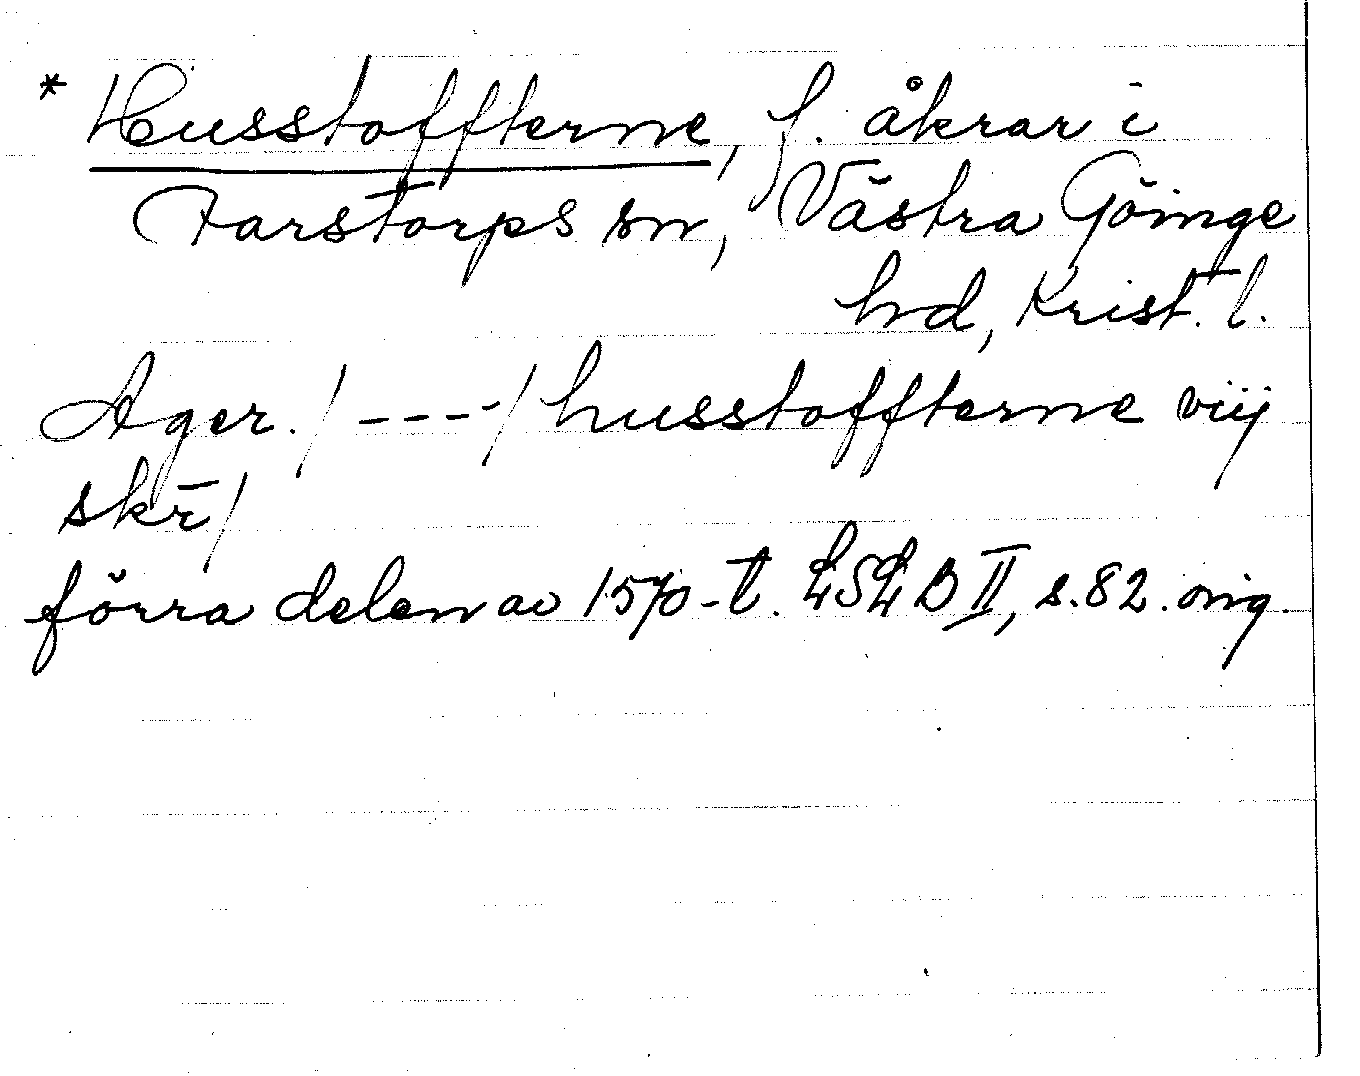 * Husstoffterne, f. åkrar i
Farstorps sn, Västra Göinge
hd, Krist. l.
Ager. / ---/ husstoffterne viij
skr̄ /
förra delen av 1570-t. LSLB II, s. 82. orig.